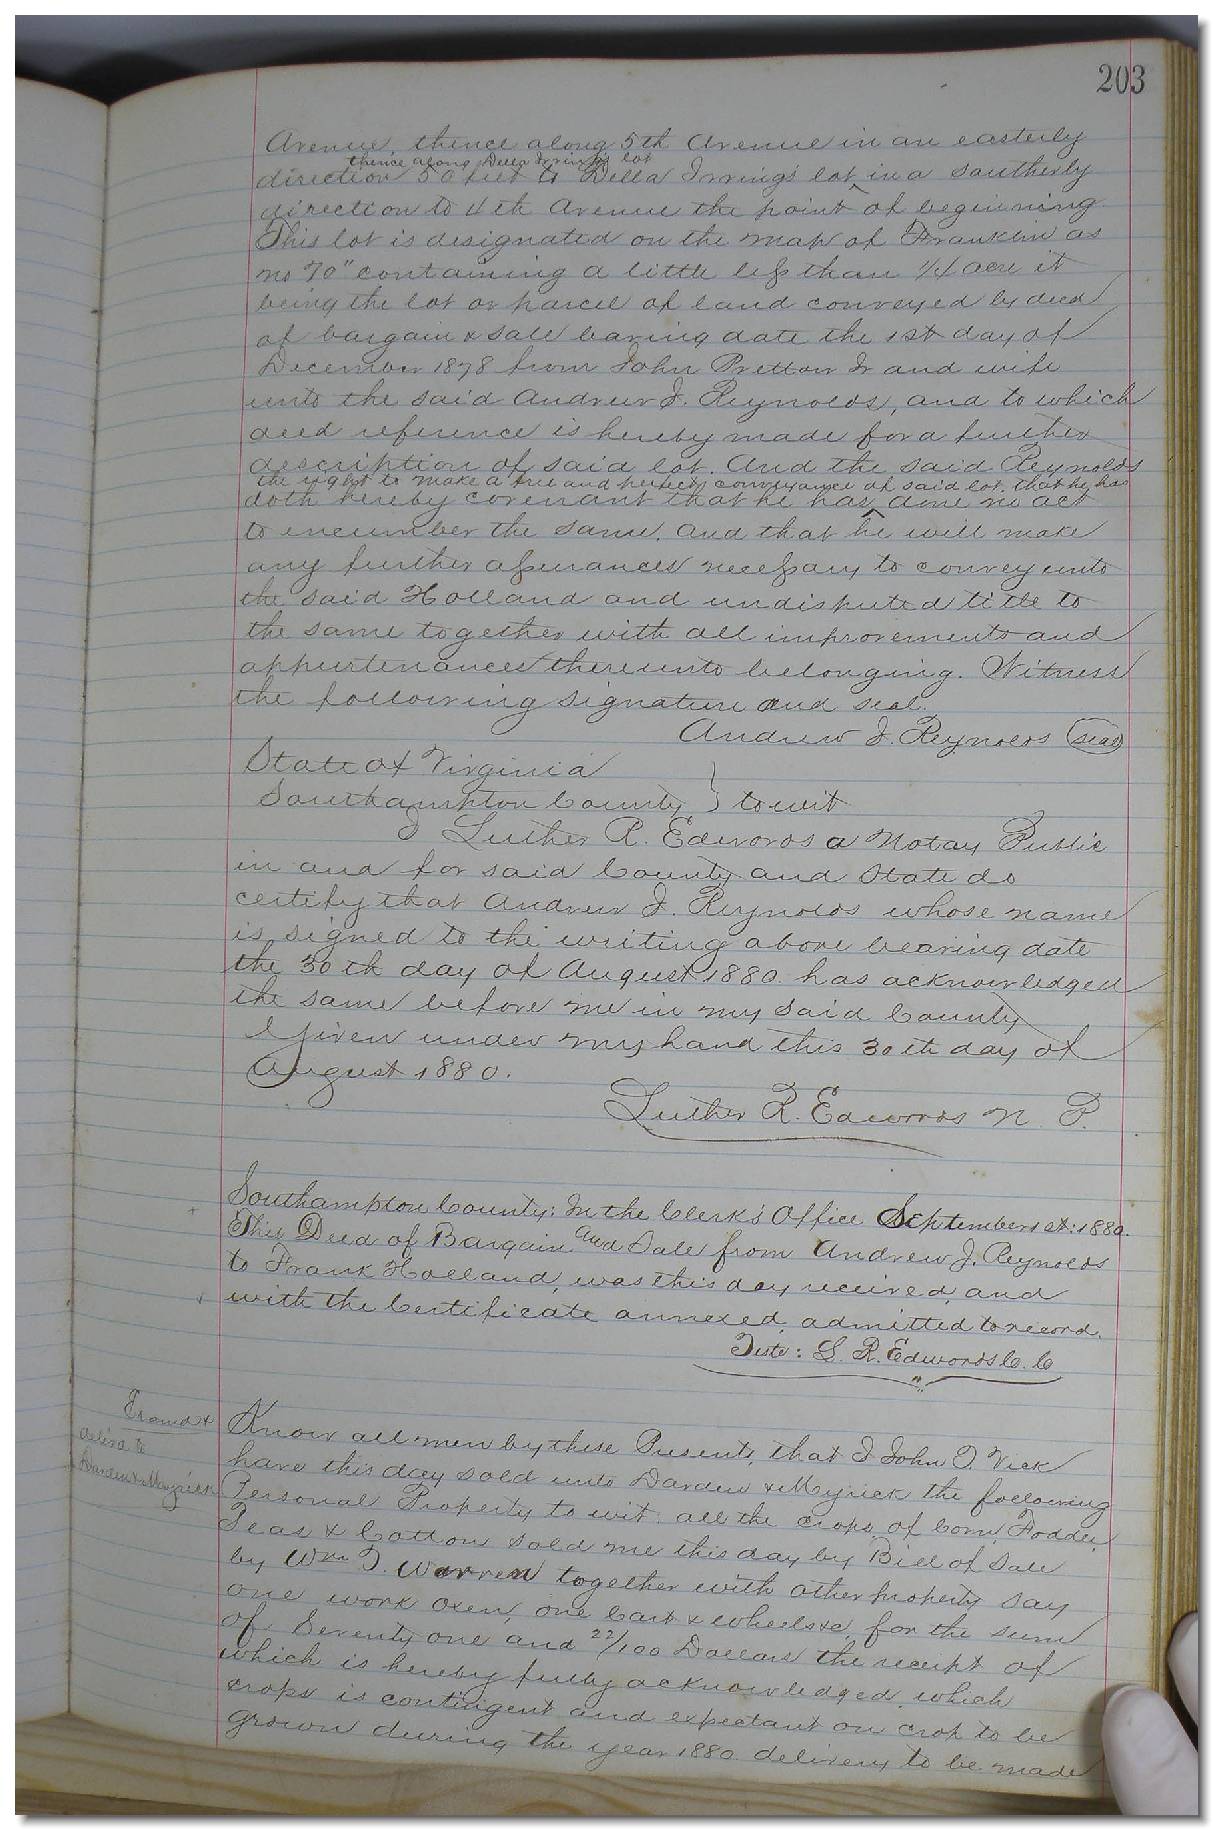 203
Avenue, thence along 5th Avenue in an easterly
thence along Della Irvings lot
direction 50 feet to Della Irvings lot in a southerly
direction to 4th Avenue the point ^ of beginning
This lot is designated on the map of Franklin as
no 70" containing a little less than 1/4 acre it
being the lot or parcel of land conveyed by deed
of bargain & sale baring date the 1st day of
December 1878 from John Pretlow Jr and wife
unto the said Andrew J. Reynolds, and to which
deed reference is hereby made for a further
description of said lot. And the said Reynolds
the right to make a free and perfect conveyance of said lot, that he has
doth hereby covenant that he has ^ done no act
to encumber the same. And that he will make
any further assurances necessary to convey unto
the said Holland and undisputed title to
the same together with all improvements and
appurtenances thereunto belonging. Witness
the following signature and seal.
Andrew J. Reynolds (seal)
State of Virginia
Southampton County } to wit
I Luther R. Edwards a Notay Public
in and for said County and State do
certify that Andrew J. Reynolds whose name
is signed to the writing above bearing date
the 30th day of August 1880. has acknowledged
the same before me in my said County
Given under my hand this 30th day of
August 1880.
Luther R. Edwards N. P.
Southampton County: In the Clerk's Office September 1st: 1880.
This Deed of Bargain and Sale from Andrew J. Reynolds
to Frank Holland, was this day received, and
with the Certificate annexed, admitted to record.
Teste: L. R. Edwards C. C
Examd &
delivd to
Darden & Myrick
Know all men by these Presents, that I John T. Vick
have this day sold unto Darden & Myrick the following
Personal Property to wit: all the crops of Corn, Fodder,
Peas & Cotton sold me this day by Bill of Sale
by Wm T. Warren together with other property say
one work oxen, one Cart & wheels &c, for the sum
of Seventy one and 22/100 Dollars the receipt of
which is hereby fully acknowledged. which
crops is contingent and expectant on crop to be
grown during the year 1880. delivery to be made